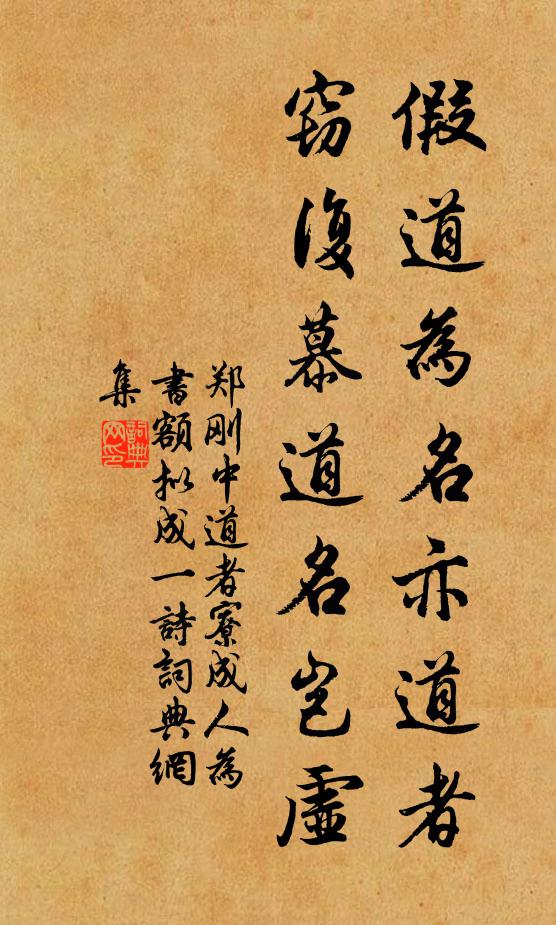 假道為名亦道者
窃復慕道名岂虛
郑刚中道者寮成人為
書額拟成一詩詞典網
集
詞典网印